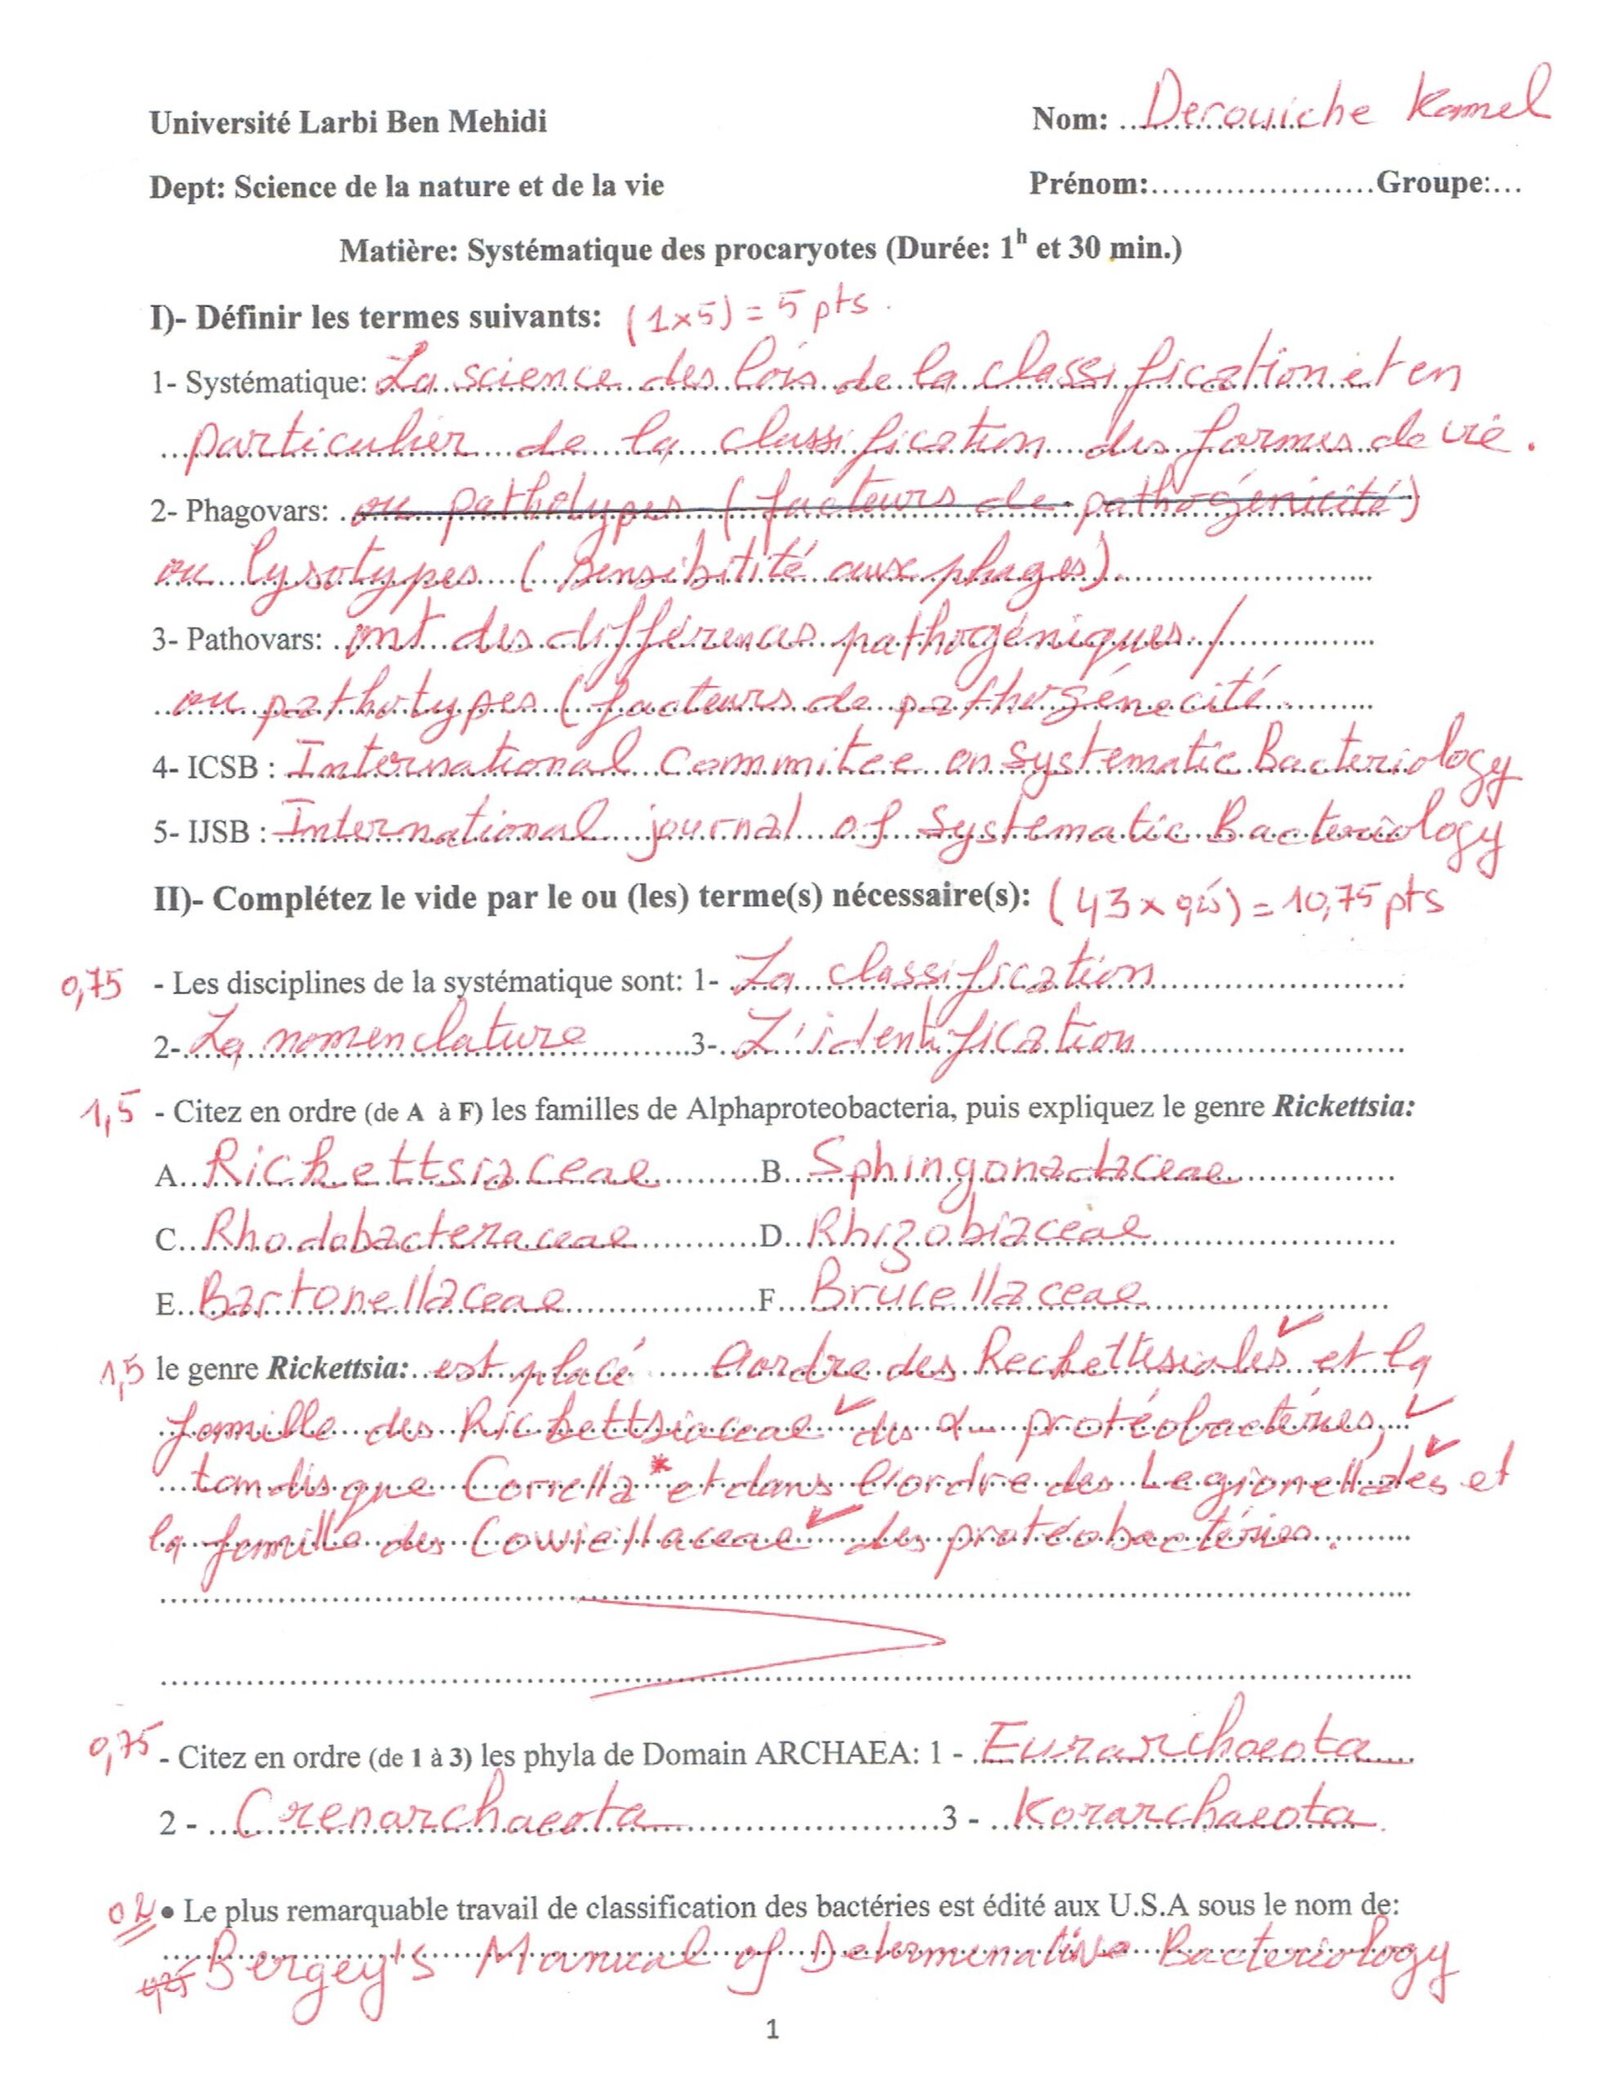 Université Larbi Ben Mehidi
Nom: Derouiche Kamel
Dept: Science de la nature et de la vie
Prénom:.....................Groupe:...
Matière: Systématique des procaryotes (Durée: 1h et 30 min.)
I)- Définir les termes suivants: (1x5) = 5 pts.
1- Systématique: La science des lois de la classification et en
particulier de la classification des formes de vie.
2- Phagovars: ou pathotypes (facteurs de pathogénicité)
ou lysotypes (sensibitité aux phages).
3- Pathovars: ont des différences pathogéniques /
ou pathotypes (facteurs de pathogénecité
4- ICSB : International Commitee on Systematic Bacteriology
5- IJSB : International journal of Systematic Bacteriology
II)- Complétez le vide par le ou (les) terme(s) nécessaire(s): (43 x ) = 10,75 pts
0,75 - Les disciplines de la systématique sont: 1- La classification
2- La nomenclature 3- L'identification
1,5 - Citez en ordre (de A à F) les familles de Alphaproteobacteria, puis expliquez le genre Rickettsia:
A. Rickettsiaceae B. Sphingonadaceae
C. Rhodobacteraceae D. Rhizobiaceae
E. Bartonellaceae F. Brucellaceae
1,5 le genre Rickettsia: est placé l'ordre des Rechettesiales et la
famille des Rickettsiaceae des α- protéobactéries,
tandis que * et dans l'ordre des Legionellales et
la famille des Cowiellaceae des protéobactéries.
0,75 - Citez en ordre (de 1 à 3) les phyla de Domain ARCHAEA: 1 - Eurarchaeota
2 - Crenarchaeota 3 - Korarchaeota
02 • Le plus remarquable travail de classification des bactéries est édité aux U.S.A sous le nom de:
Bergey's Manual of Determenative Bacteriology
1